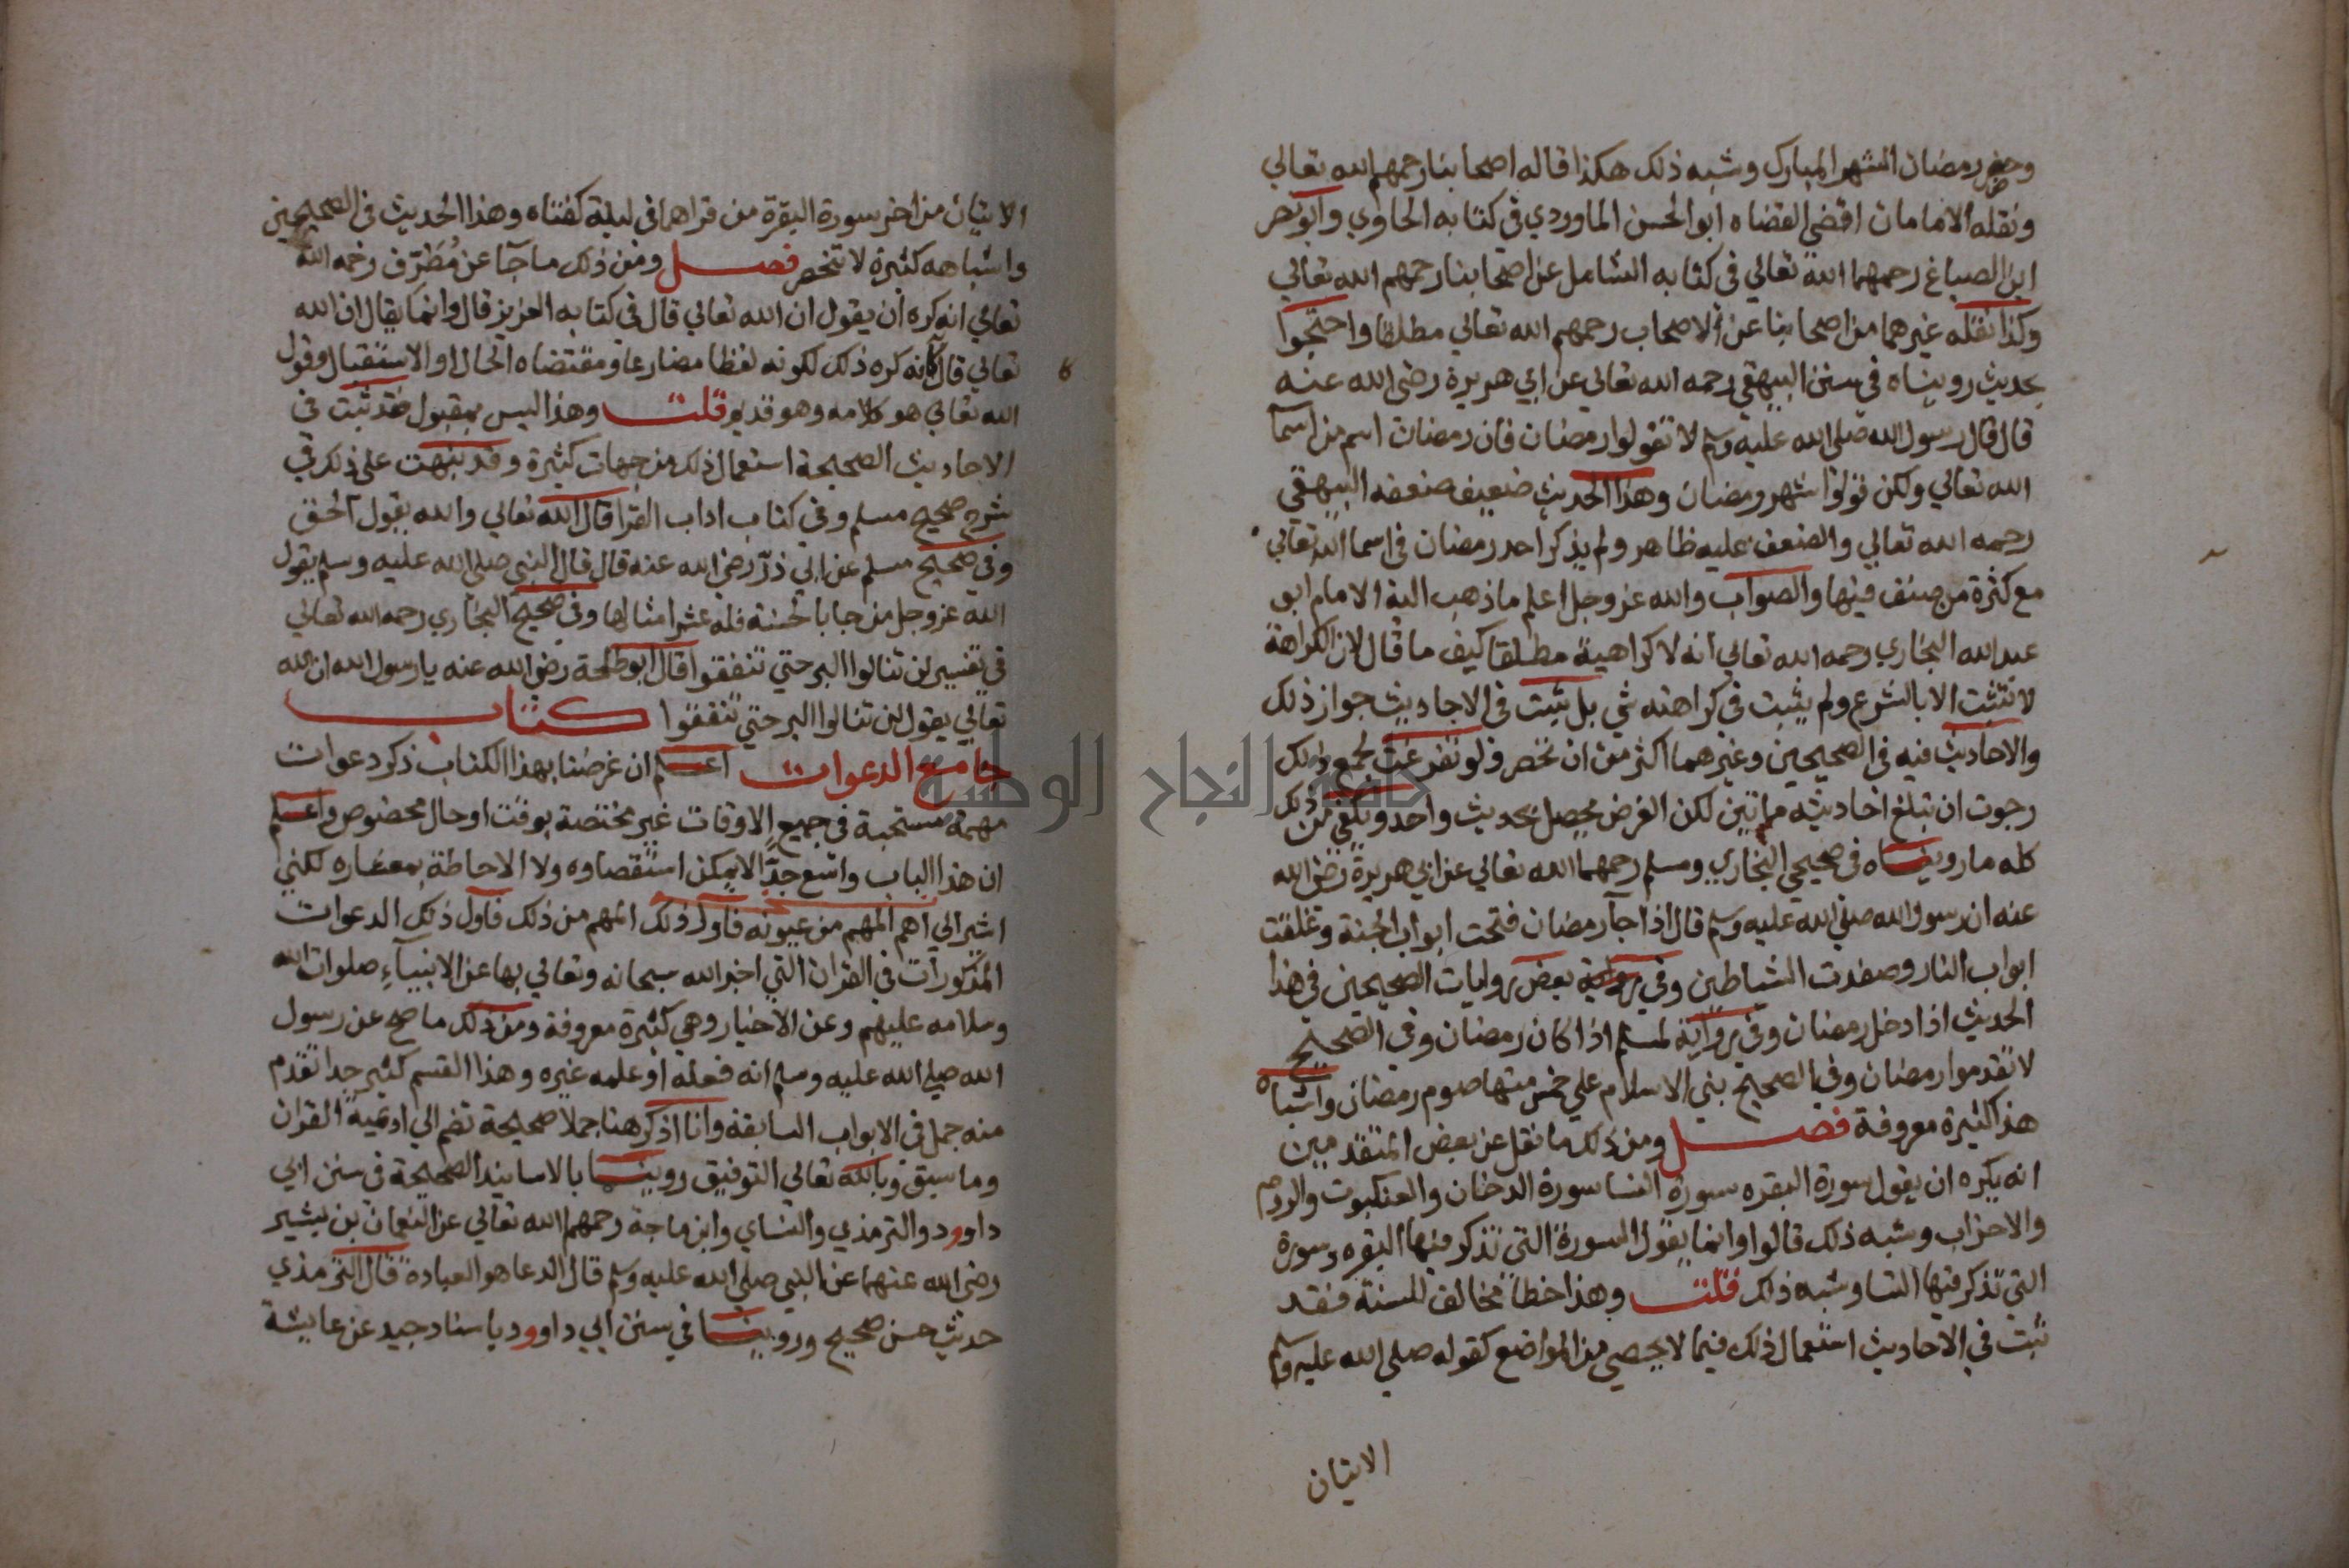 وحضر رمضان الشهر المبارك وشبه ذلك هكذا قاله اصحابنا رحمهم الله تعالي
ونقله الامامان اقضي القضاه ابو الحسن الماوردي في كتابه الحاوي وابو نصر
ابن الصباغ رحمهما الله تعالي في كتابه الشامل عن اصحابنا رحمهم الله تعالي
وكذا نقله غيرهما من اصحابنا عن الاصحاب رحمهم الله تعالي مطلقا واحتجوا
بحديث رويناه في سنن البيهقي رحمه الله تعالي عن ابي هريرة رضي الله عنه
قال قال رسول الله صلي الله عليه وسلم لا تقولوا رمضان فان رمضان اسم من اسمآ
الله تعالي ولكن قولوا شهر رمضان وهذا الحديث ضعيف ضعفه البيهقي
رحمه الله تعالي والضعف عليه ظاهر ولم يذكر احد رمضان في اسما الله تعالي
مع كثرة من صنف فيها والصواب والله عز وجل اعلم ما ذهب اليه الامام ابو
عبد الله البخاري رحمه الله تعالي انه لا كراهية مطلقا كيف ما قال لان الكراهة
لا تثبت الا بالشرع ولم يثبت في كراهته شي بل ثبت في الاحاديث جواز ذلك
والاحاديث فيه في الصحيحين وغيرهما اكثر من ان تحصر ولو تفرغت لجمع ذلك
رجوت ان تبلغ احاديثه مايتين لكن الغرض يحصل بحديث واحد ويكفي من ذلك
كله ما رويناه في صحيحي البخاري ومسلم رحمهما الله تعالي عن ابي هريرة رضي الله
عنه ان رسول الله صلي الله عليه وسلم قال اذا جآ رمضان فتحت ابواب الجنة وغلقت
ابواب النار وصفدت الشياطين وفي رواية بعض روايات الصحيحين في هذا
الحديث اذا دخل رمضان وفي رواية لمسلم اذا كان رمضان وفي الصحيح
لا تقدموا رمضان وفي الصحيح بني الاسلام علي خمس منها صوم رمضان واشباه
هذا كثيرة معروفة فصل ومن ذلك ما نقل عن بعض المتقدمين
انه يكره ان يقول سورة البقره سورة النسا سورة الدخان والعنكبوت والروم
والاحزاب وشبه ذلك قالوا وانما يقول السورة التي تذكر فيها البقره وسورة
التي تذكر فيها النسا وشبه ذلك قلت وهذا خطا مخالف للسنة فقد
ثبت في الاحاديث استعمال ذلك فيما لا يحصي من المواضع كقوله صلي الله عليه وسلم
الايتان
الايتان من اخر سورة البقرة من قراهما في ليلة كفتاه وهذا الحديث في الصحيحين
واشباهه كثيرة لا تنحصر فصل ومن ذلك ما جآ عن مُطَرّف رحمه الله
تعالي انه كره ان يقول ان الله تعالي قال في كتابه العزيز قال وانما يقال ان الله
تعالي قال كانه كره ذلك لكونه لفظا مضارعا ومقتضاه الحال او الاستقبال وقول
الله تعالي هو كلامه وهو قديم قلت وهذا ليس بمقبول فقد ثبت في
الاحاديث الصحيحة استعمال ذلك من جهات كثيرة وقد نبهت علي ذلك في
شرح صحيح مسلم وفي كتاب اداب القرا قال الله تعالي والله يقول الحق
وفي صحيح مسلم عن ابي ذرّ رضي الله عنه قال قال النبي صلي الله عليه وسلم يقول
الله عز وجل من جا بالحسنة فله عشر امثالها وفي صحيح البخاري رحمه الله تعالي
في تفسير لن تنالوا البر حتي تنفقوا قال ابو طلحة رضي الله عنه يا رسول الله ان الله
تعالي يقول لن تنالوا البر حتي تنفقوا كتاب
جامع الدعوات اعلم ان غرضنا بهذا الكتاب ذكر دعوات
مهمة مستحبة في جميع الاوقات غير مختصة بوقت او حال مخصوص واعلم
ان هذا الباب واسع جدّا لا يمكن استقصاوه ولا الاحاطة بمعشاره لكني
اشير الي اهم المهم من عيونه فاول ذلك المهم من ذلك فاول ذلك الدعوات
المذكورات في القران التي اخبر الله سبحانه وتعالي بها عن الانبيآء صلوات الله
وسلامه عليهم وعن الاخيار وهي كثيرة معروفة ومن ذلك ما صح عن رسول
الله صلي الله عليه وسلم انه فعله او علمه غيره وهذا القسم كثير جدا تقدم
منه جمل في الابواب السابقة وانا اذكر هنا جملا صحيحة تضم الي ادعية القران
وما سبق وبالله تعالي التوفيق روينا بالاسانيد الصحيحة في سنن ابي
داوود والترمذي والنساي وابن ماجة رحمهم الله تعالي عن النعمان بن بشير
رضي الله عنهما عن النبي صلي الله عليه وسلم قال الدعا هو العبادة قال الترمذي
حديث حسن صحيح وروينا في سنن ابي داوود باسناد جيد عن عايشة
جامعة النجاح الوطنية